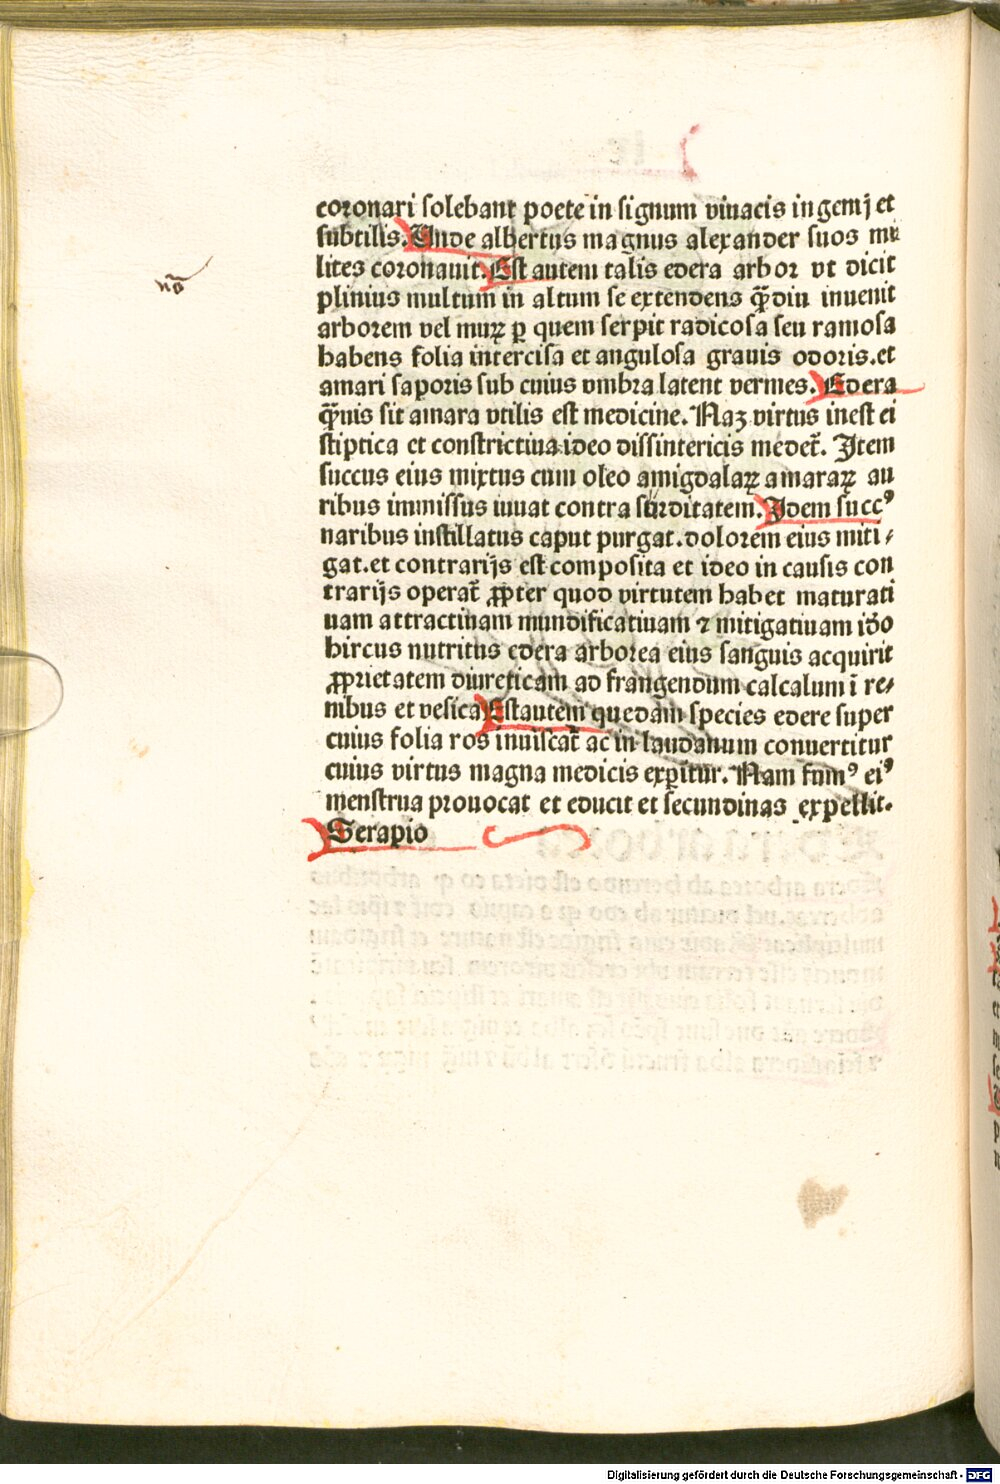 coronari solebant poete in signum viuacis ingemj et
subtilis. Unde albertus magnus alexander suos mi
lites coronauit. Est autem talis edera arbor vt dicit
plinius multum in altum se extendens q̄diu inuenit
arborem vel muꝝ ꝑ quem serpit radicosa seu ramosa
habens folia intercisa et angulosa grauis odoris. et
amari saporis sub cuius vmbra latent vermes. Edera
q̄uis sit amara vtilis est medicine. Naꝫ virtus inest ei
stiptica et constrictiua ideo dissintericis medet̄. Item
succus eius mixtus cum oleo amigdalaꝝ amaraꝝ au
ribus immissus iuuat contra surditatem. Idem succꝰ
naribus instillatus caput purgat. dolorem eius miti⸗
gat. et contrarijs est composita et ideo in causis con
trarijs operat̄ ꝓpter quod virtutem habet maturati
uam attractiuam mundificatiuam ⁊ mitigatiuam iđo
hircus nutritus edera arborea eius sanguis acquirit
ꝓprietatem diureticam ad frangendum calcalum ī re⸗
nibus et vesica Est autem quedam species edere super
cuius folia ros inuiscat̄ ac in laudanum conuertitur
cuius virtus magna medicis exꝑitur. Nam fumꝰ eiꝰ
menstrua prouocat et educit et secundinas expellit.
Serapio
nō
Digitalisierung gefördert durch die Deutsche Forschungsgemeinschaft - DFG